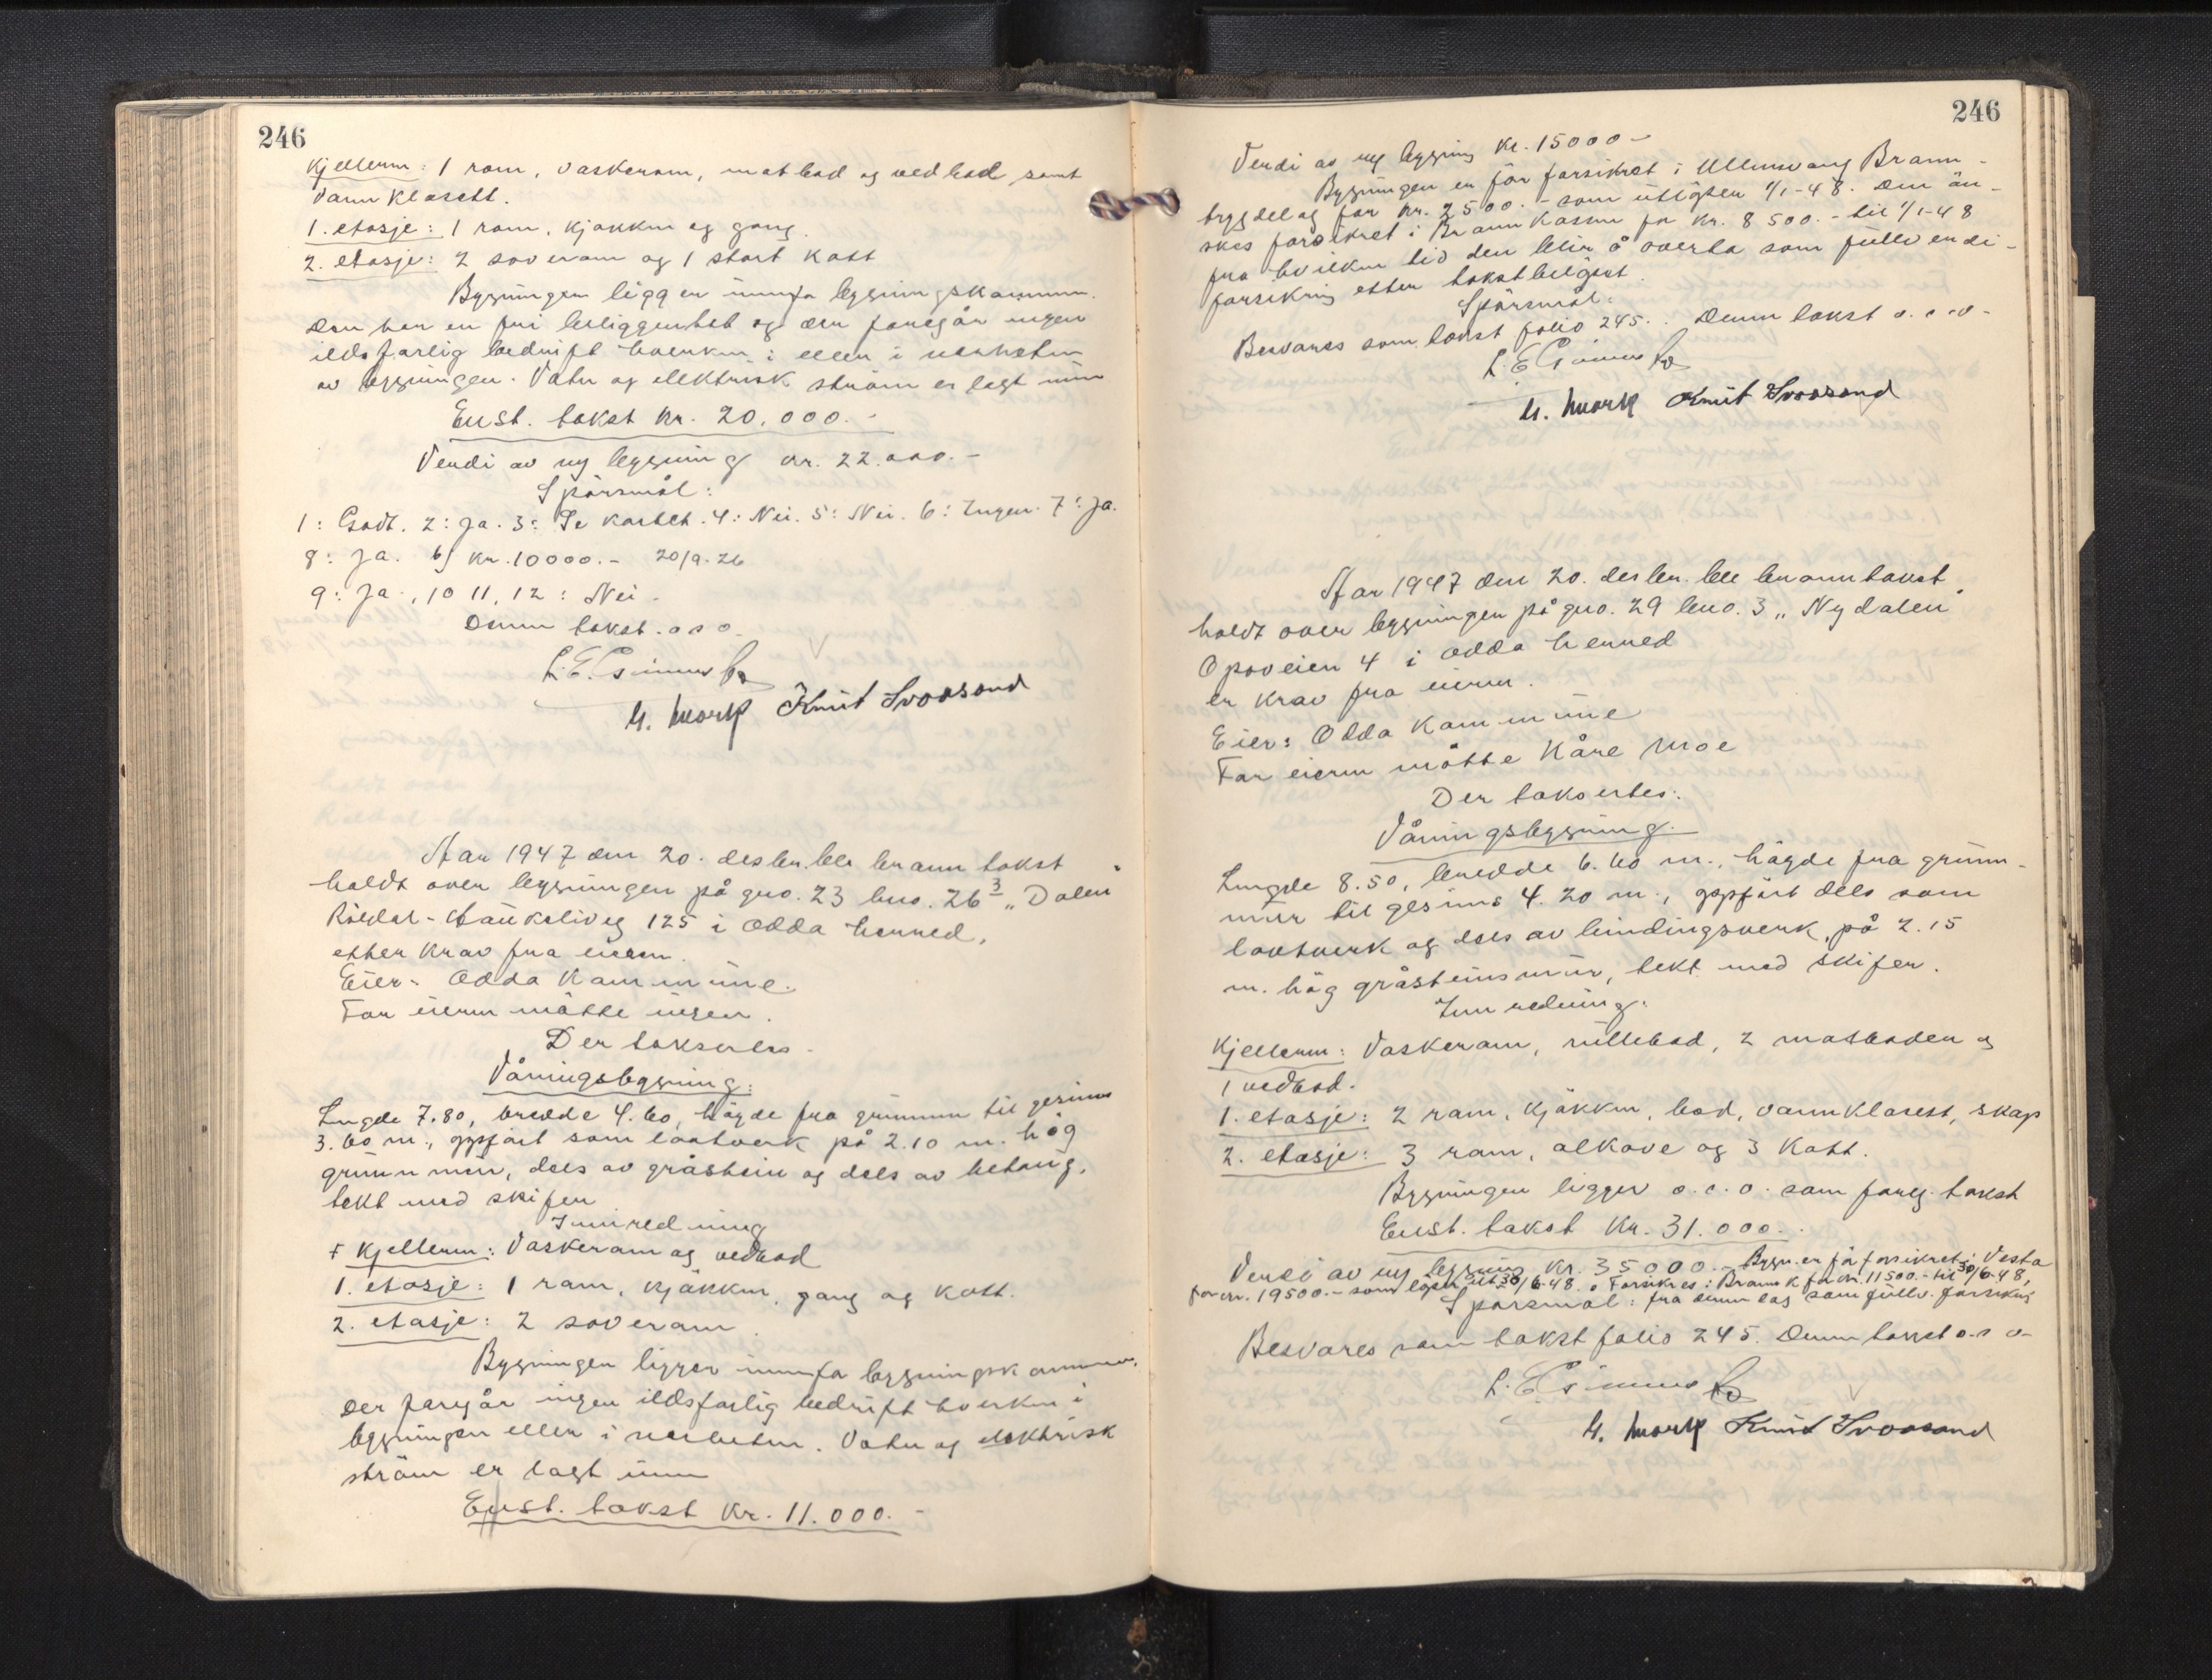 246
Kjelleren: 1 rom, vaskerom, matbod og vedbod samt
vannklosett.
1. etasje: 1 rom, kjøkken og gang.
2. etasje: 2 soverom og 1 stort kott
Bygningen ligger innenfor bygningskommunen.
Den har en fri beliggenhet og der foregår ingen
ildsfarlig bedrift hverken i eller i nærheten
av bygningen. Vatn og elektrisk strøm er lagt inn
Enst. takst kr. 20.000.-
Verdi av ny bygning kr. 22.000.-
Spørsmål:
1: Godt. 2: Ja. 3: Se kartet. 4: Nei. 5: Nei. 6: Ingen. 7: Ja.
8: Ja. b) kr. 10000.- 20/9-26
9: Ja, 10 11, 12: Nei.
Denne takst o s o.
L. E.
H. Mork Knut Svoasand
Aar 1947 den 20. desbr. ble branntakst
holdt over bygningen på gno. 23 bno. 26 3 „Dalen"
Röldal-Haukeliveg 125 i Odda herred,
etter krav fra eieren.
Eier: Odda kommune.
For eieren møtte ingen.
Der takseres.
Våningsbygning:
Lengde 7.80, bredde 4.60, høgde fra grunnen til gesims
3.60 m., oppført som laftverk på 2.10 m. høg
grunnmur, dels av gråstein og dels av betong,
tekt med skifer
Innredning
+ Kjelleren: Vaskerom og vedbod
1. etasje: 1 rom, kjøkken, gang og kott.
2. etasje: 2 soverom.
Bygningen ligger innenfor bygningskommunen.
Der foregår ingen ildsfarlig bedrift hverken i
bygningen eller i nærheten. Vatn og elektrisk
strøm er lagt inn
Enst. takst kr. 11.000.-
246
Verdi av ny bygning kr. 15000-
Bygningen er før forsikret i Ullensvang Brann-
trygdelag for kr. 2500.- som utløper 1/1-48. Den øn-
skes forsikret i Brannkassen for kr. 8500.- til 1/1-48
fra hvilken tid den blir å overta som fullverdi-
forsikring etter takstbeløpet.
Spørsmål:
Besvares som takst folio 245. Denne takst o. s. o-
L. E.
H. Mork Knut Svoasand
Aar 1947 den 20. desbr. ble branntakst
holdt over bygningen på gno. 29 bno. 3 „Nydalen"
Opoveien 4 i Odda herred
er krav fra eieren.
Eier: Odda kommune
For eieren møtte Kåre Moe
Der takseres:
Våningsbygning.
Lengde 8.50, bredde 6.60 m., høgde fra grunn-
mur til gesims 4.20 m., oppført dels som
laftverk og dels av bindingsverk, på 2.15
m. høg gråsteinsmur, tekt med skifer.
Innredning:
Kjelleren: Vaskerom, rullebod, 2 matboder og
1 vedbod.
1. etasje: 2 rom, kjøkken, bod, vannklosett, skap
2. etasje: 3 rom, alkove og 3 kott.
Bygningen ligger o. s. o. som foreg. takst
Enst. takst kr. 31.000.-
Verdi av ny bygning kr. 35000.- Bygn. er før forsikret i Vesta
for kr. 19500.- som løper ut 30/6-48. Forsikres i Brannk for kr. 11500.- til 30/6-48,
Spørsmål: fra denne dag som fullv. forsikring
Besvares som takst folio 245. Denne takst o. s o-
L. E.
H. Mork Knut Svoasand